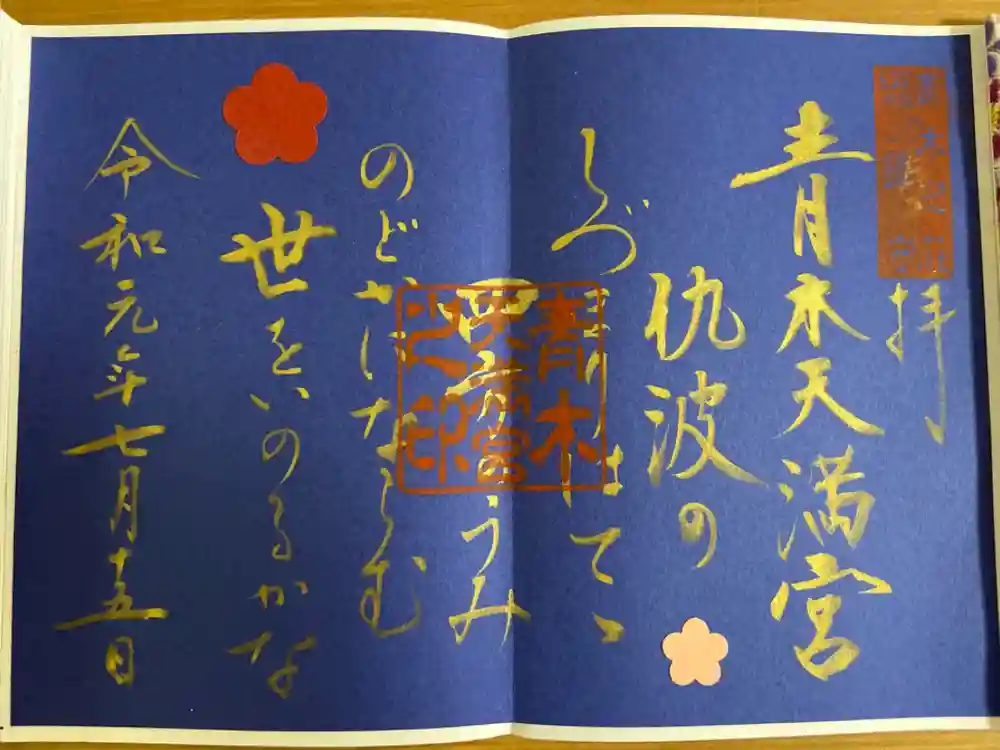 拝
青木天満宮
仇波の
しづまりはてゝ
四方のうみ
のどかにならむ
世をいのるかな
令和元年七月十五日
青木
天満宮
之印